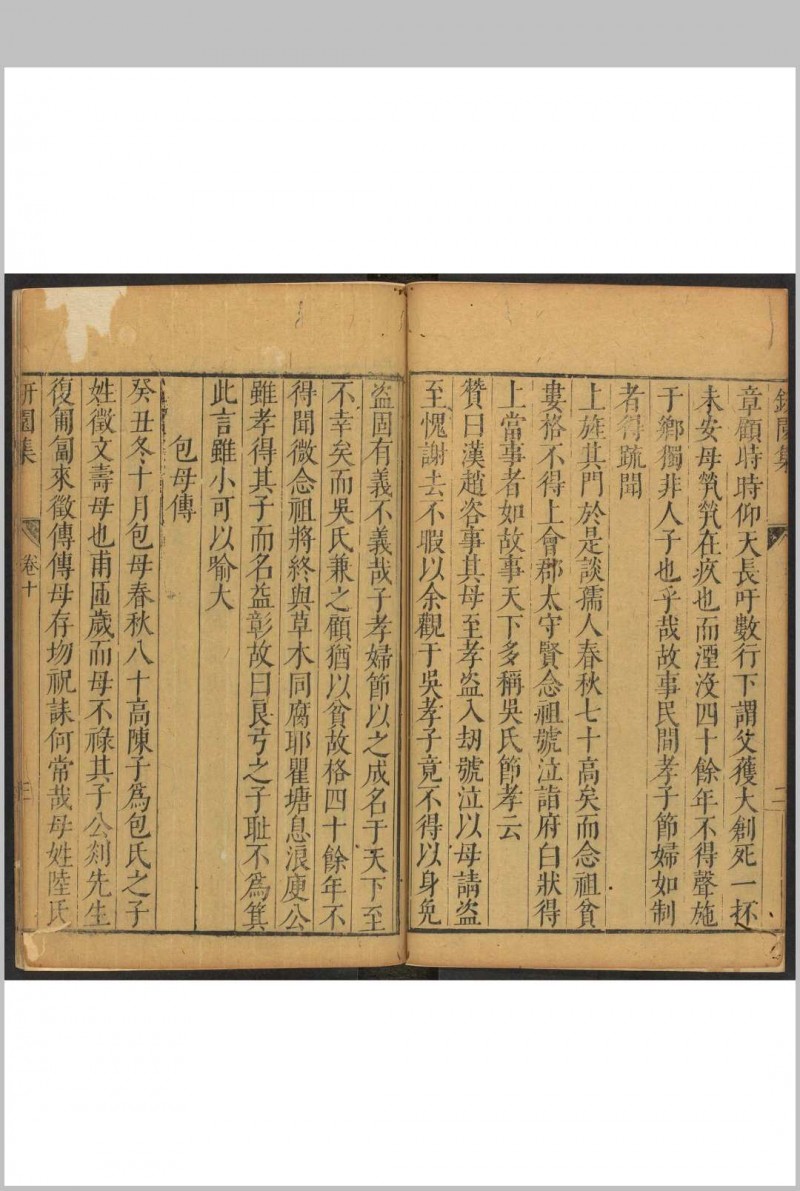 章顧時時仰天長吁數行下謂父獲大創死一抔
未安母煢煢在疚也而湮沒四十餘年不得聲施
于鄉獨非人子也乎哉故事民間孝子節婦如制
者得疏聞
上旌其門於是談孺人春秋七十高矣而念祖貧
婁格不得上會郡太守賢念祖號泣詣府白狀得
上當事者如故事天下多稱吳氏節孝云
贊曰漢趙咨事其母至孝盜入刼號泣以母請盜
至愧謝去不暇以余觀于吳孝子竟不得以身免
盜固有義不義哉子孝婦節以之成名于天下至
不幸矣而吳氏兼之顧猶以貧故格四十餘年不
得聞微念祖將終與草木同腐耶瞿塘息浪庾公
雖孝得其子而名益彰故曰良弓之子耻不爲箕
此言雖小可以喻大
包母傳
癸丑冬十月包母春秋八十高陳子爲包氏之子
姓徵文壽母也甫匝歲而母不祿其子公剡先生
復匍匐來徵傳傳母存歾祝誄何常哉母姓陸氏
研園集
卷十